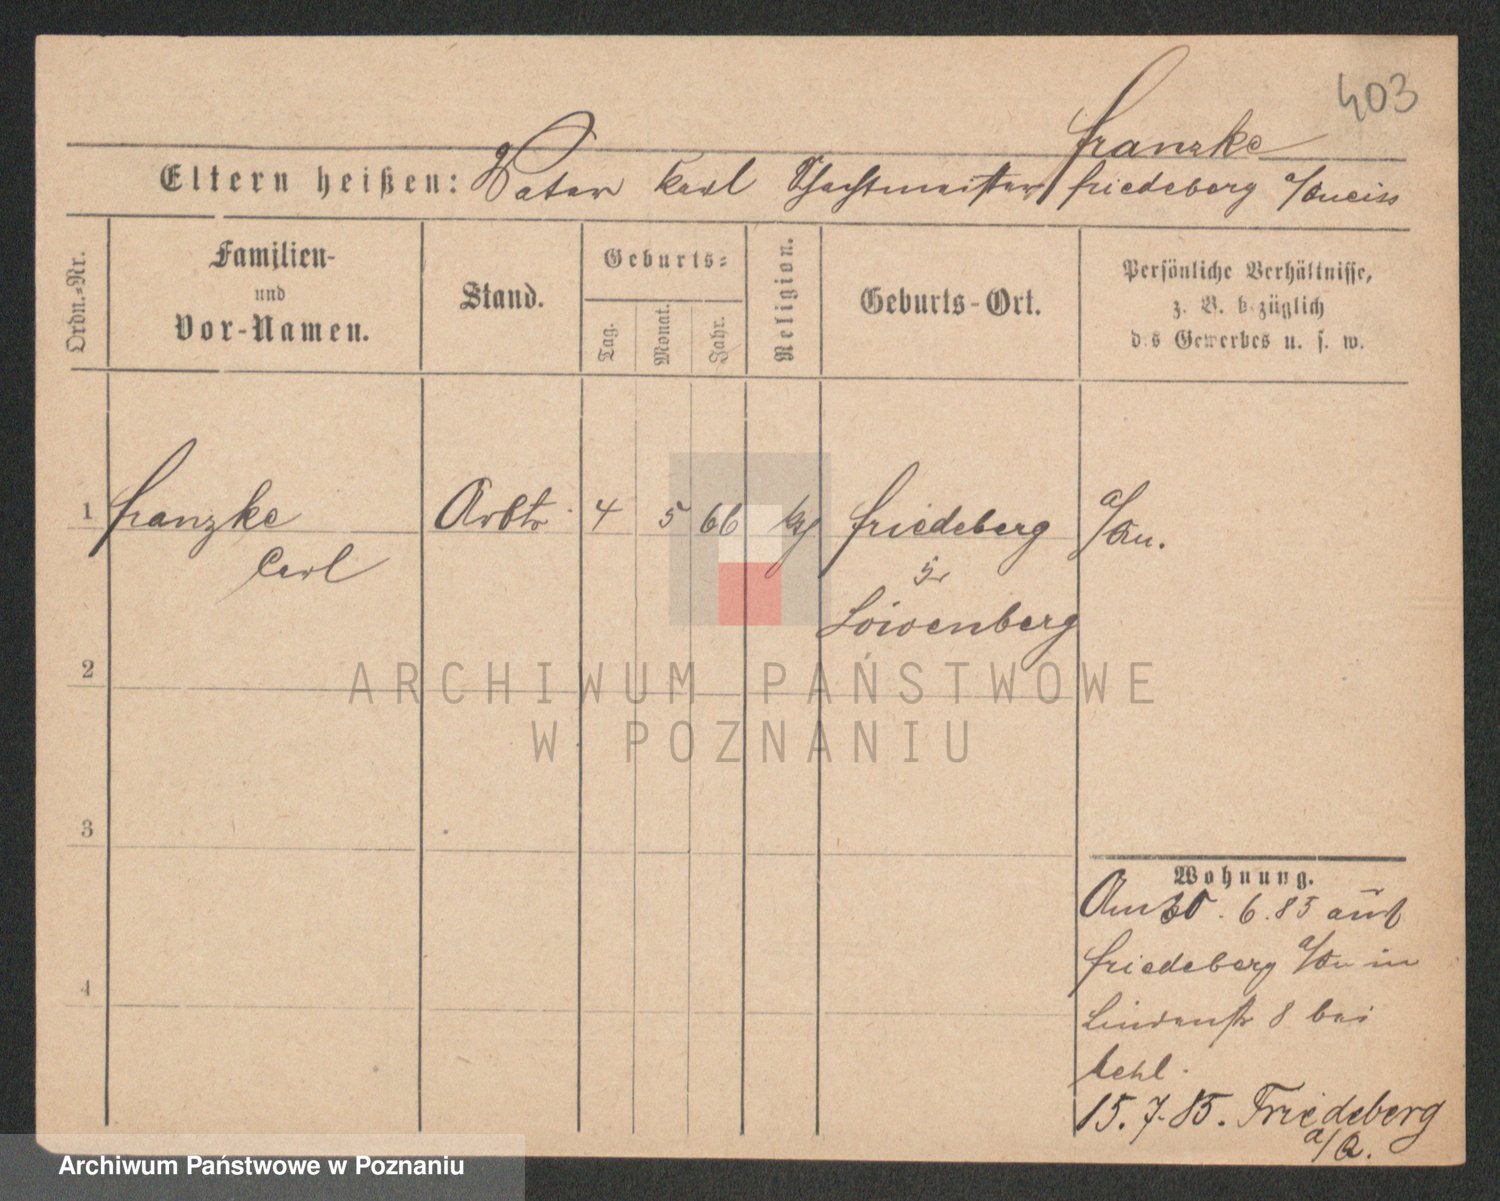 403
Franzke
Eltern heißen: Vater Karl Schachtmeister Friedeberg a/Queiss
Ordn.-Nr.
Familien-
und
Vor-Namen.
Stand.
Geburts-
Tag.
Monat.
Jahr.
Religion.
Geburts-Ort.
Persönliche Verhältnisse,
z. B. bezüglich
des Gewerbes u. s. w.
1 Franzke Arbtr. 4 5 66 Friedeberg a/Qu.
Carl
Löwenberg
2
3
4
Wohnung.
Am 30. 6. 85 aus
Friedeberg a/Qu in
Lindenstr 8 bei
15. 7. 85. Friedeberg
a/Q.
ARCHIWUM PAŃSTWOWE
W POZNANIU
Archiwum Państwowe w Poznaniu